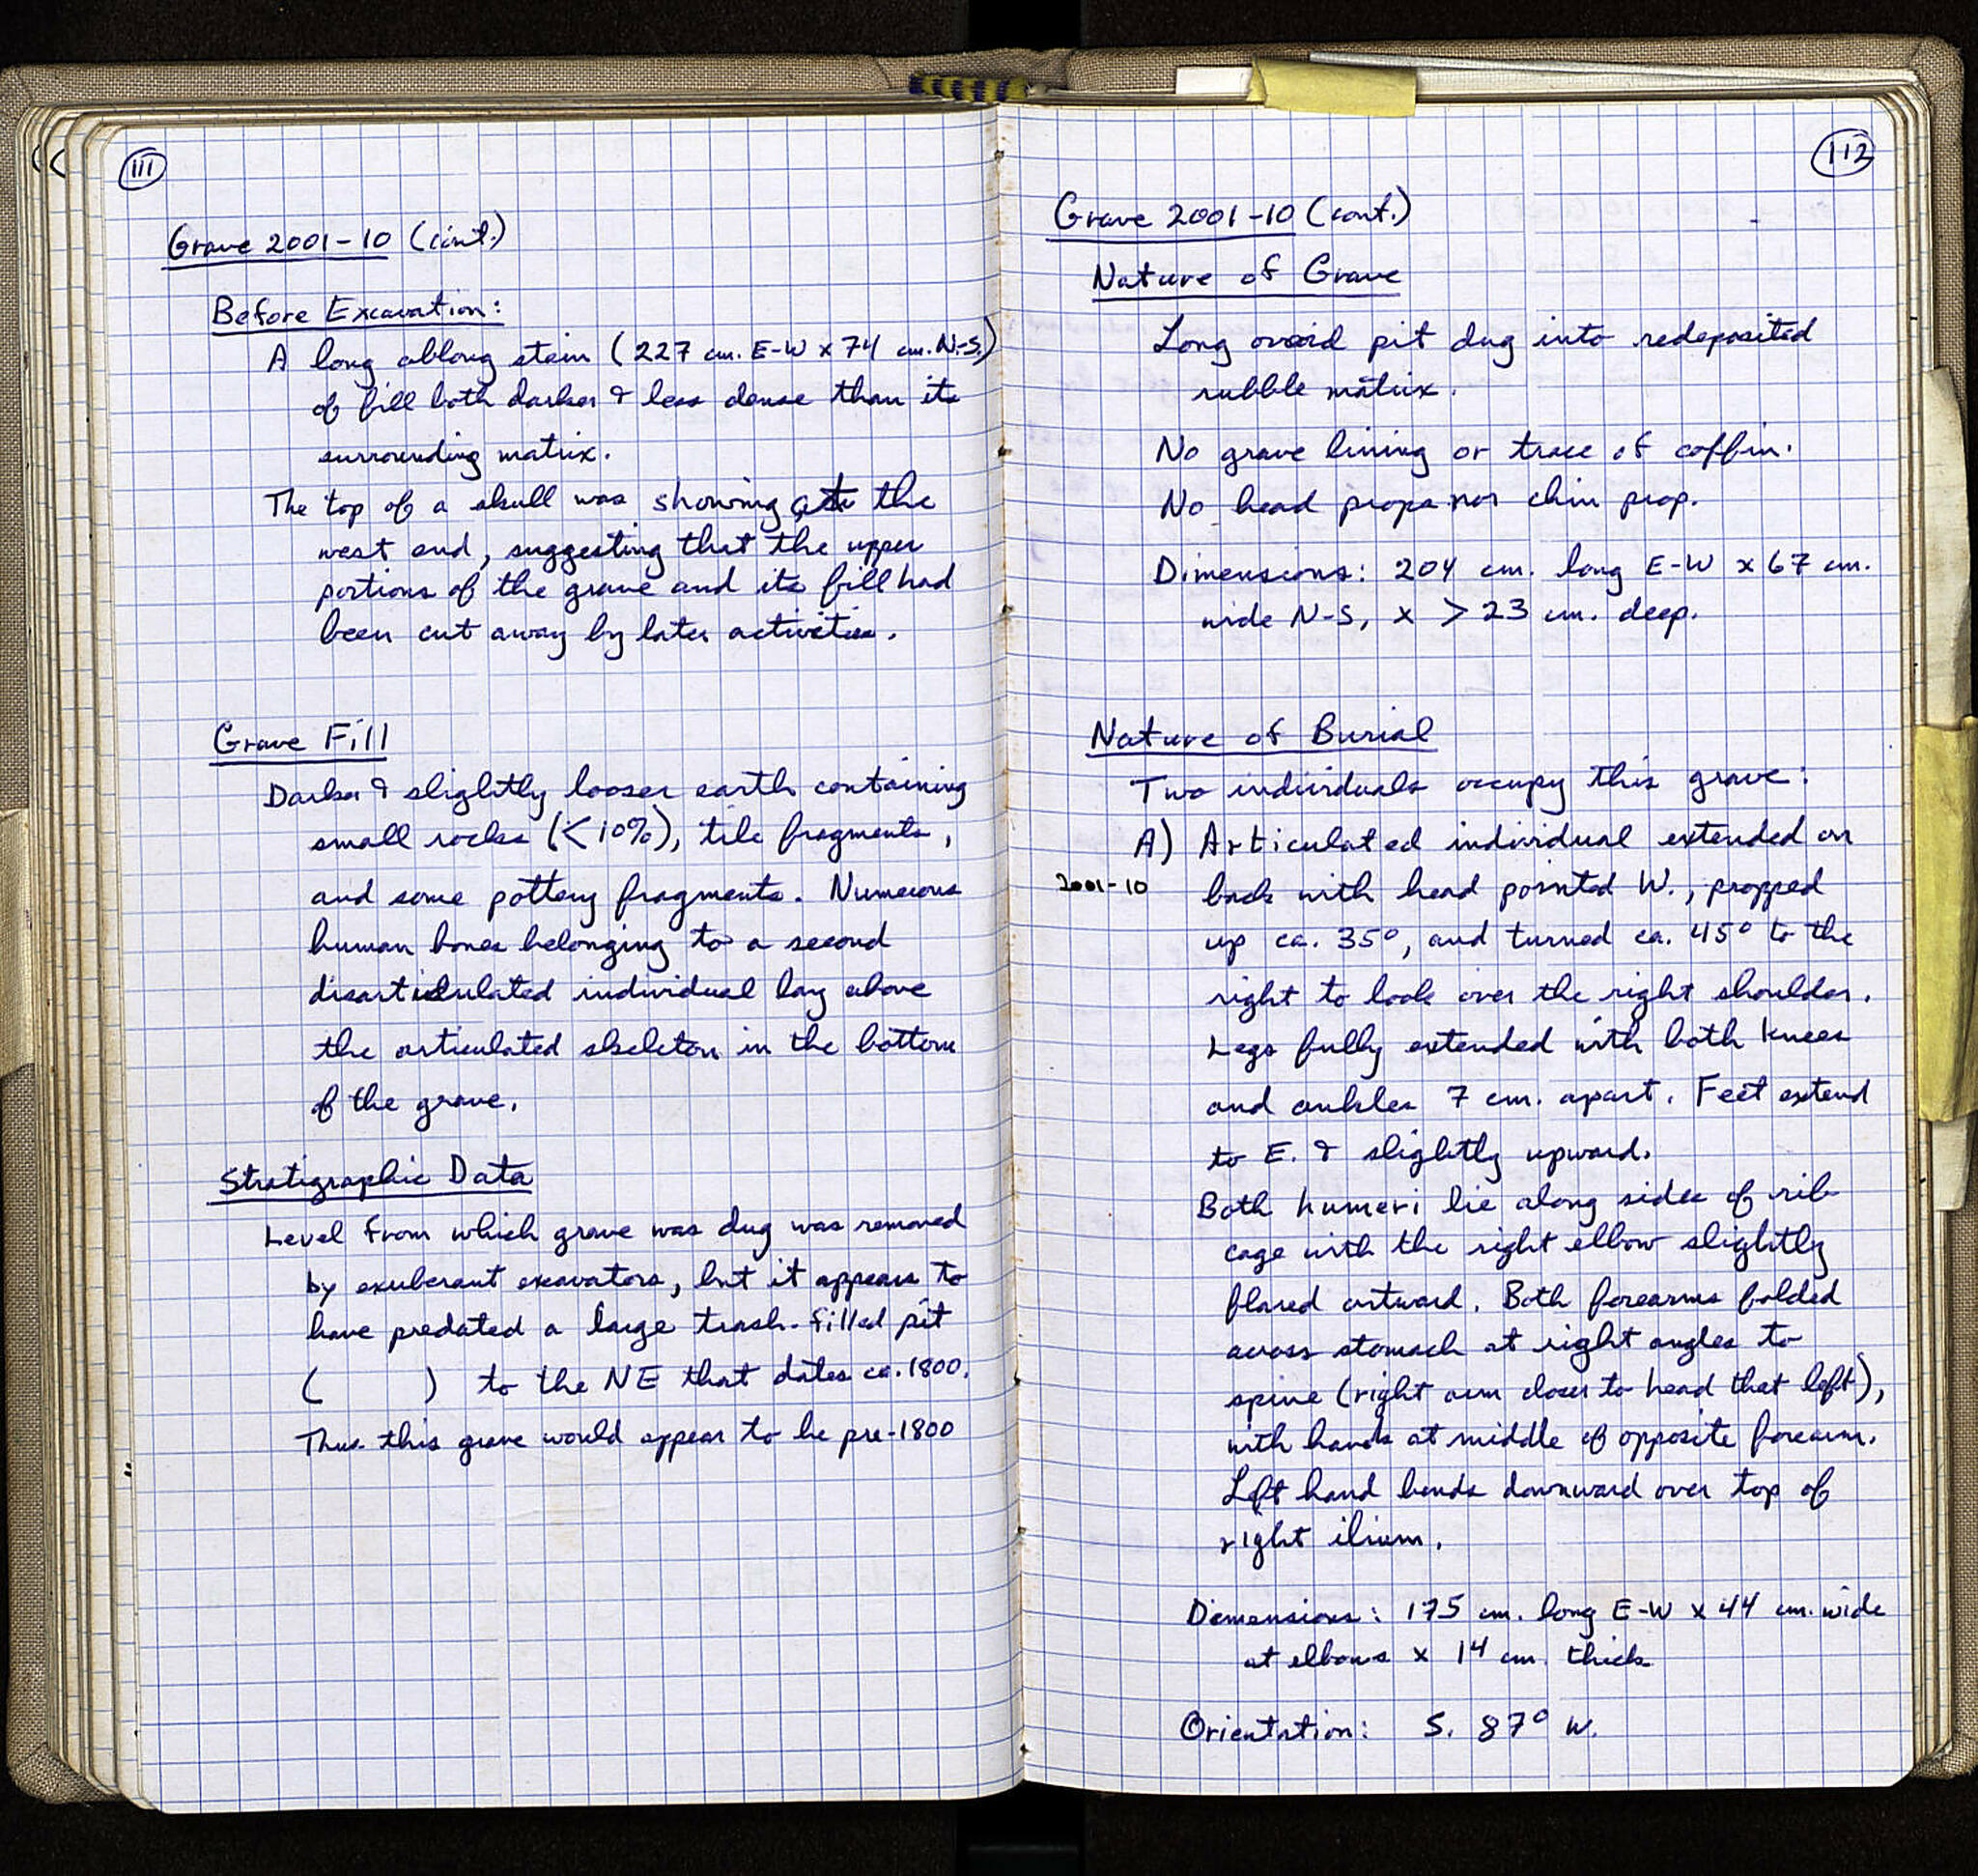 111
Grave 2001-10 (cont.)
Before Excavation:
A long oblong stain (227 cm. E-W x 74 cm. N-S.)
of fill both darker & less dense than its
surrounding matrix.
The top of a skull was showing at the
west end, suggesting that the upper
portions of the grave and its fill had
been cut away by later activities.
Grave Fill
Darker & slightly looser earth containing
small rocks (<10%), tile fragments,
and some pottery fragments. Numerous
human bones belonging to a second
disarticulated individual lay above
the articulated skeleton in the bottom
of the grave.
Stratigraphic Data
Level from which grave was dug was removed
by exuberant excavators, but it appears to
have predated a large trash-filled pit
( ) to the NE that dates ca. 1800.
Thus this grave would appear to be pre-1800
112
Grave 2001-10 (cont.)
Nature of Grave
Long ovoid pit dug into redeposited
rubble matrix.
No grave lining or trace of coffin.
No head props nor chin prop.
Dimensions: 204 cm. long E-W x 67 cm.
wide N-S, x > 23 cm. deep.
Nature of Burial
Two individuals occupy this grave:
A) Articulated individual extended on
2001-10 back with head pointed W., propped
up ca. 35°, and turned ca. 45° to the
right to look over the right shoulder.
Legs fully extended with both knees
and ankles 7 cm. apart. Feet extend
to E. & slightly upward.
Both humeri lie along sides of rib
cage with the right elbow slightly
flared outward. Both forearms folded
across stomach at right angles to
spine (right arm closer to head that left),
with hands at middle of opposite forearm.
Left hand bends downward over top of
right ilium.
Dimensions: 175 cm. long E-W x 44 cm. wide
at elbows x 14 cm. thick
Orientation: S. 87° W.